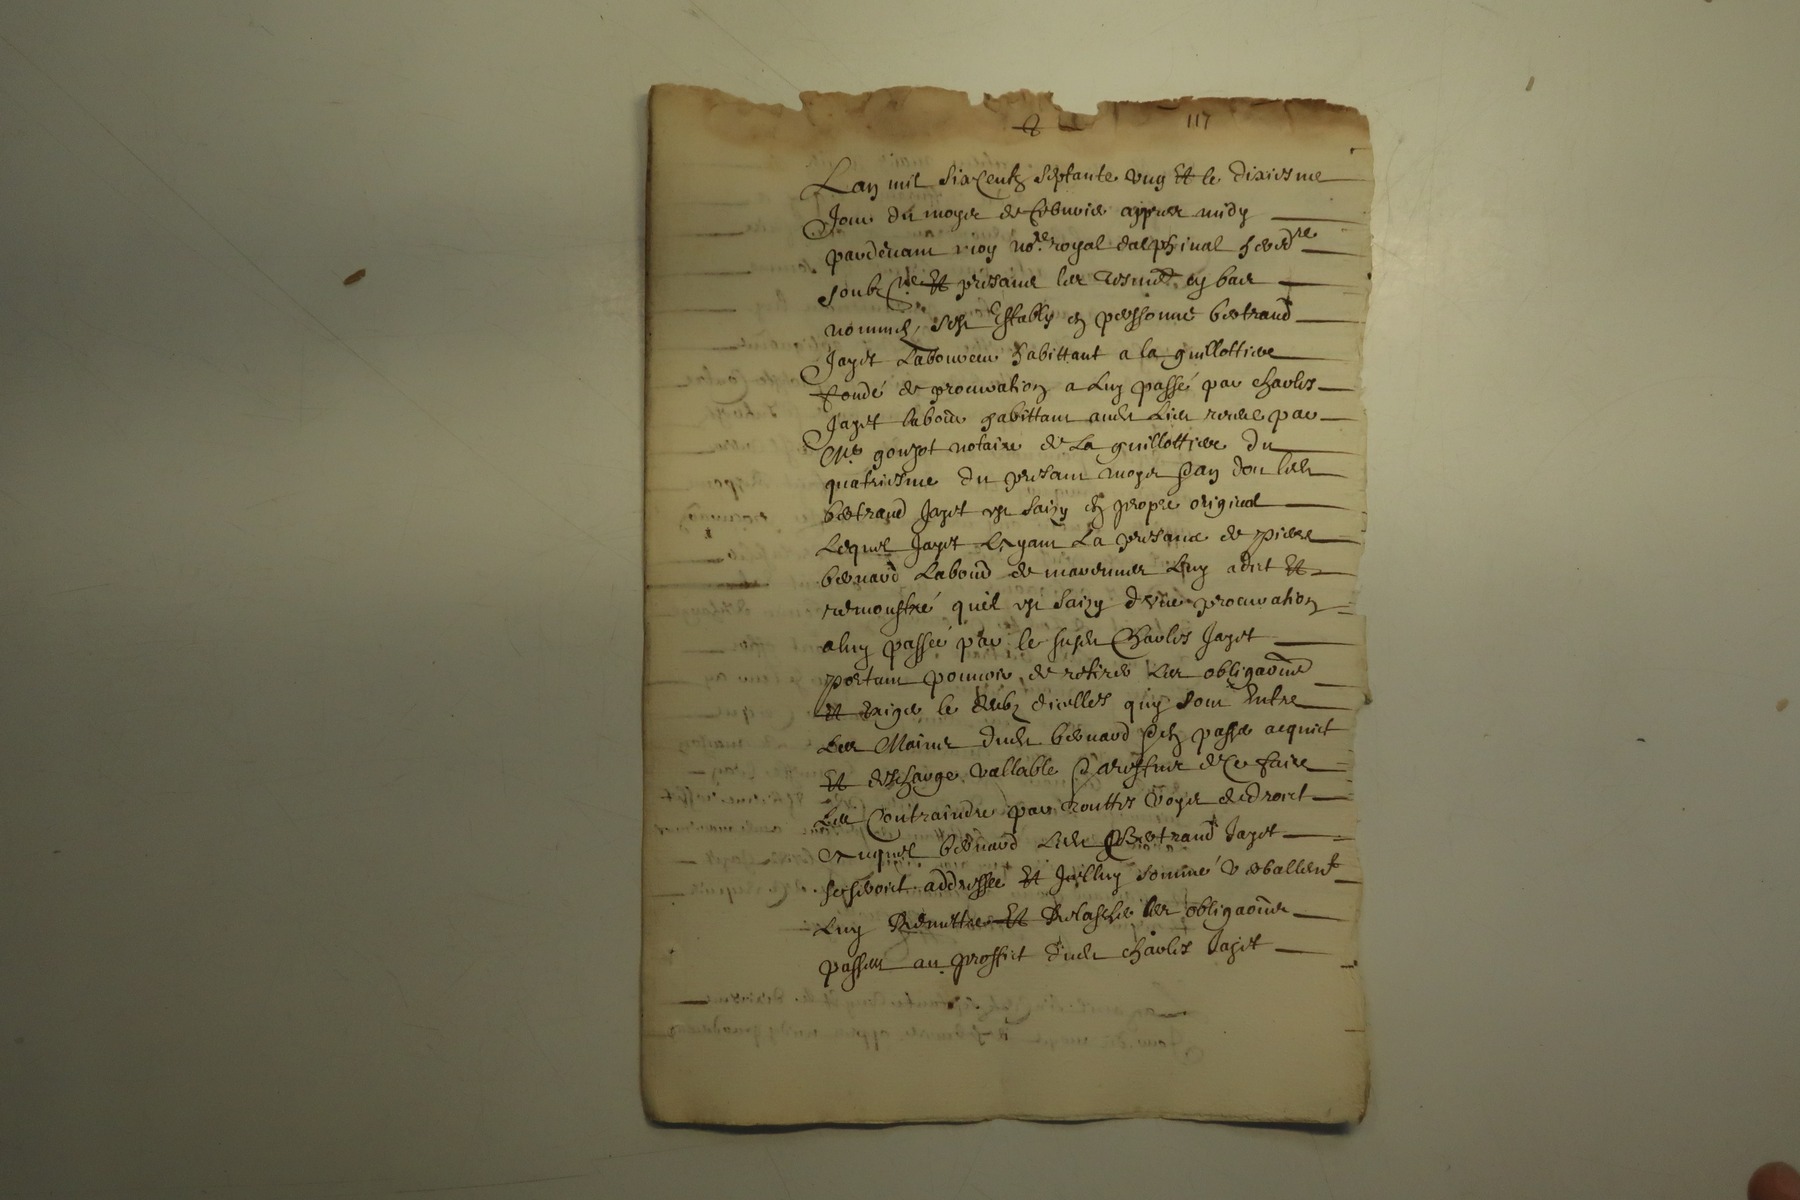 117
Lan mil six centz septante ung et le dixiesme
Jour du moys de febvrier appres midy
pardevant moy no.re royal dalphinal hered.re
soubz.né et presance les tesmoe en bas
nommés sest estably en personne bertrand
Jayet laboureur habittant a la guillottiere
fondé de procuration a luy passé par charles
Jayet labour habittant aud lieu receue par
Me goujot notaire de la guillottiere du
quatriesme du presant moys dan dont led
bertrand Jayet est saisy en propre original
Lequel Jayet ayant la presance de pierre
bernard labour de marennes luy a dict et
remonstré quil est saisy dune procuration
a luy passée par le susd Charles Jayet
portant pouvoir de retirer les obligaons
et exiger le deubz dicelles quy sont entre
les Mains dud bernard den passer acquict
et descharge vallable à reffus de ce faire
les Contraindre par touttes voyes de droict
auquel bernard led Bertrand Jayet
sesseroict addressé et Jcelluy sommé verballemt
luy Remettre et Relascher les obligaons
passees au proffict dud charles Jayet